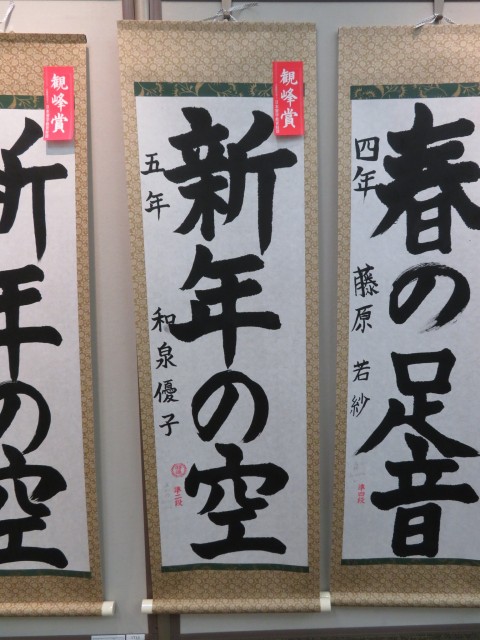 春の足音
四年 藤原若紗
準四段
観峰賞
新年の空
五年 和泉優子
準二段
観峰賞
新年の空